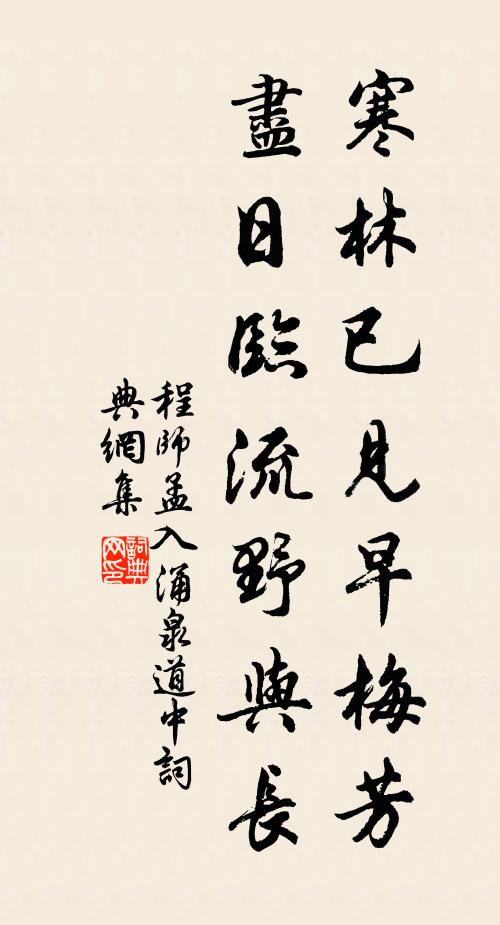 寒林已見早梅芳
盡日臨流野與長
程師孟入涌泉道中詞
典網集
詞典
网印